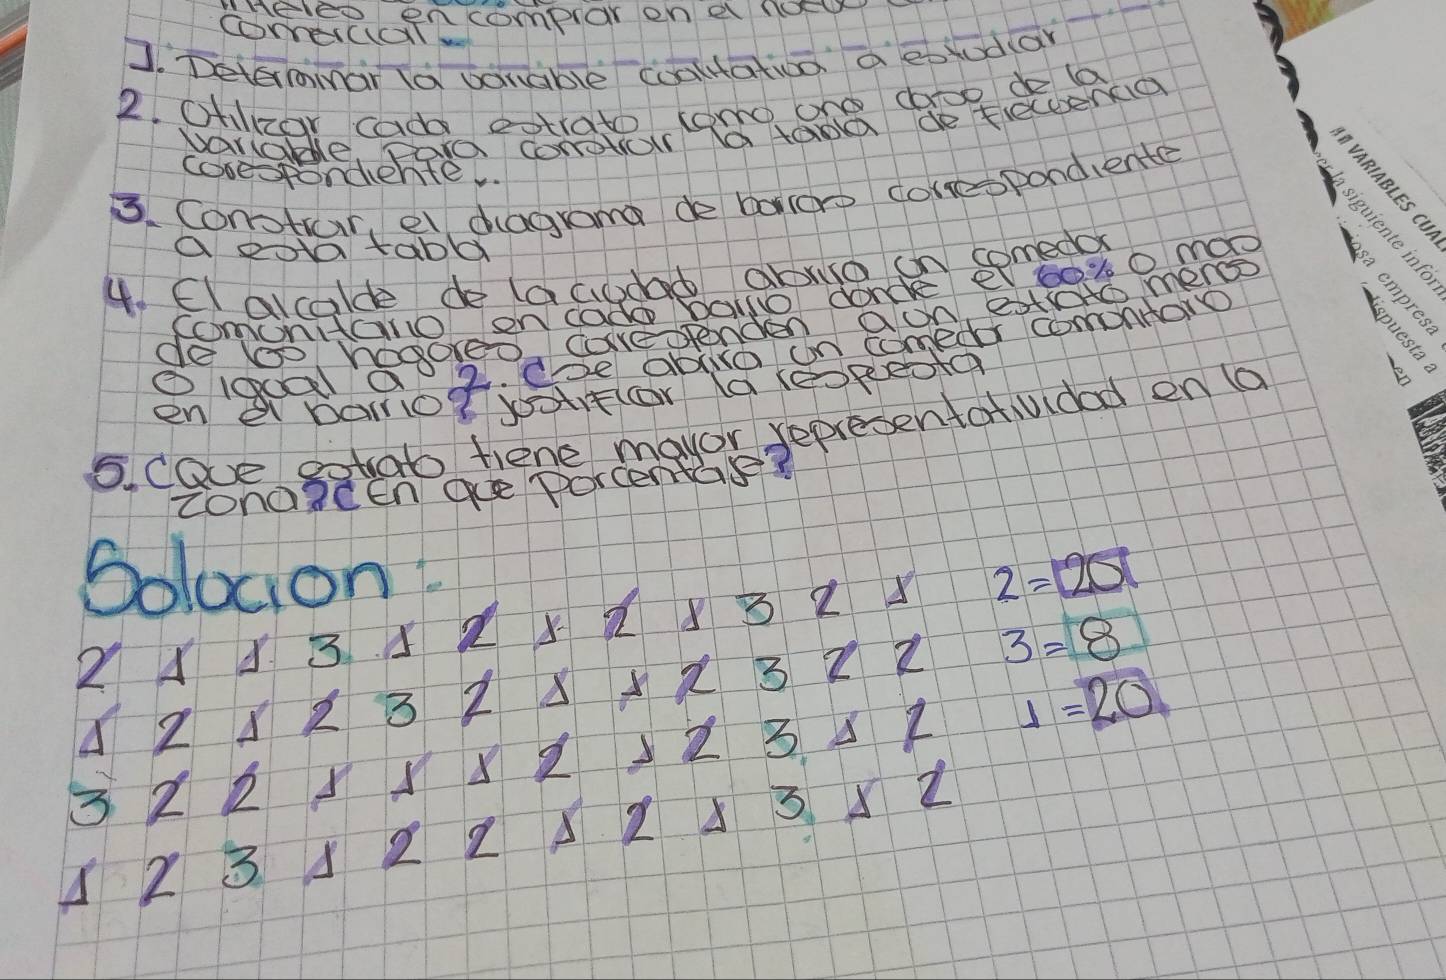 en comprar en el
comercial.
1. Determinar la variable cualitativa a estudiar
2. Utilizar cada estrato como una clase de la
variable para construir la tabla de frecuencia
corespondiente.
3. Construir el diagrama de barras correspondiente
a esta tabla
4. El alcalde de la ciudad abrira un comedor
comunitario en cada barrio donde el 60% o mas
de los hogares corespenden a un estrato menos
o igual a 2. ¿ se abrira un comedor comunitario
en el barrio? justificar la respuesta
5. ¿Que estrato tiene mayor representatividad en la
zona? ¿ En que porcentaje?
Solucion:
2 1 1 3 1 2 1 2 1 3 2 1 2=20
1 2 1 2 3 2 1 1 2 3 2 2 3=8
3 2 2 1 1 1 2 1 2 3 1 2 1=20
1 2 3 1 2 2 1 2 1 3 1 2
VARIABLES CUAL
la siguiente inform
osa empresa
spuesta a
en